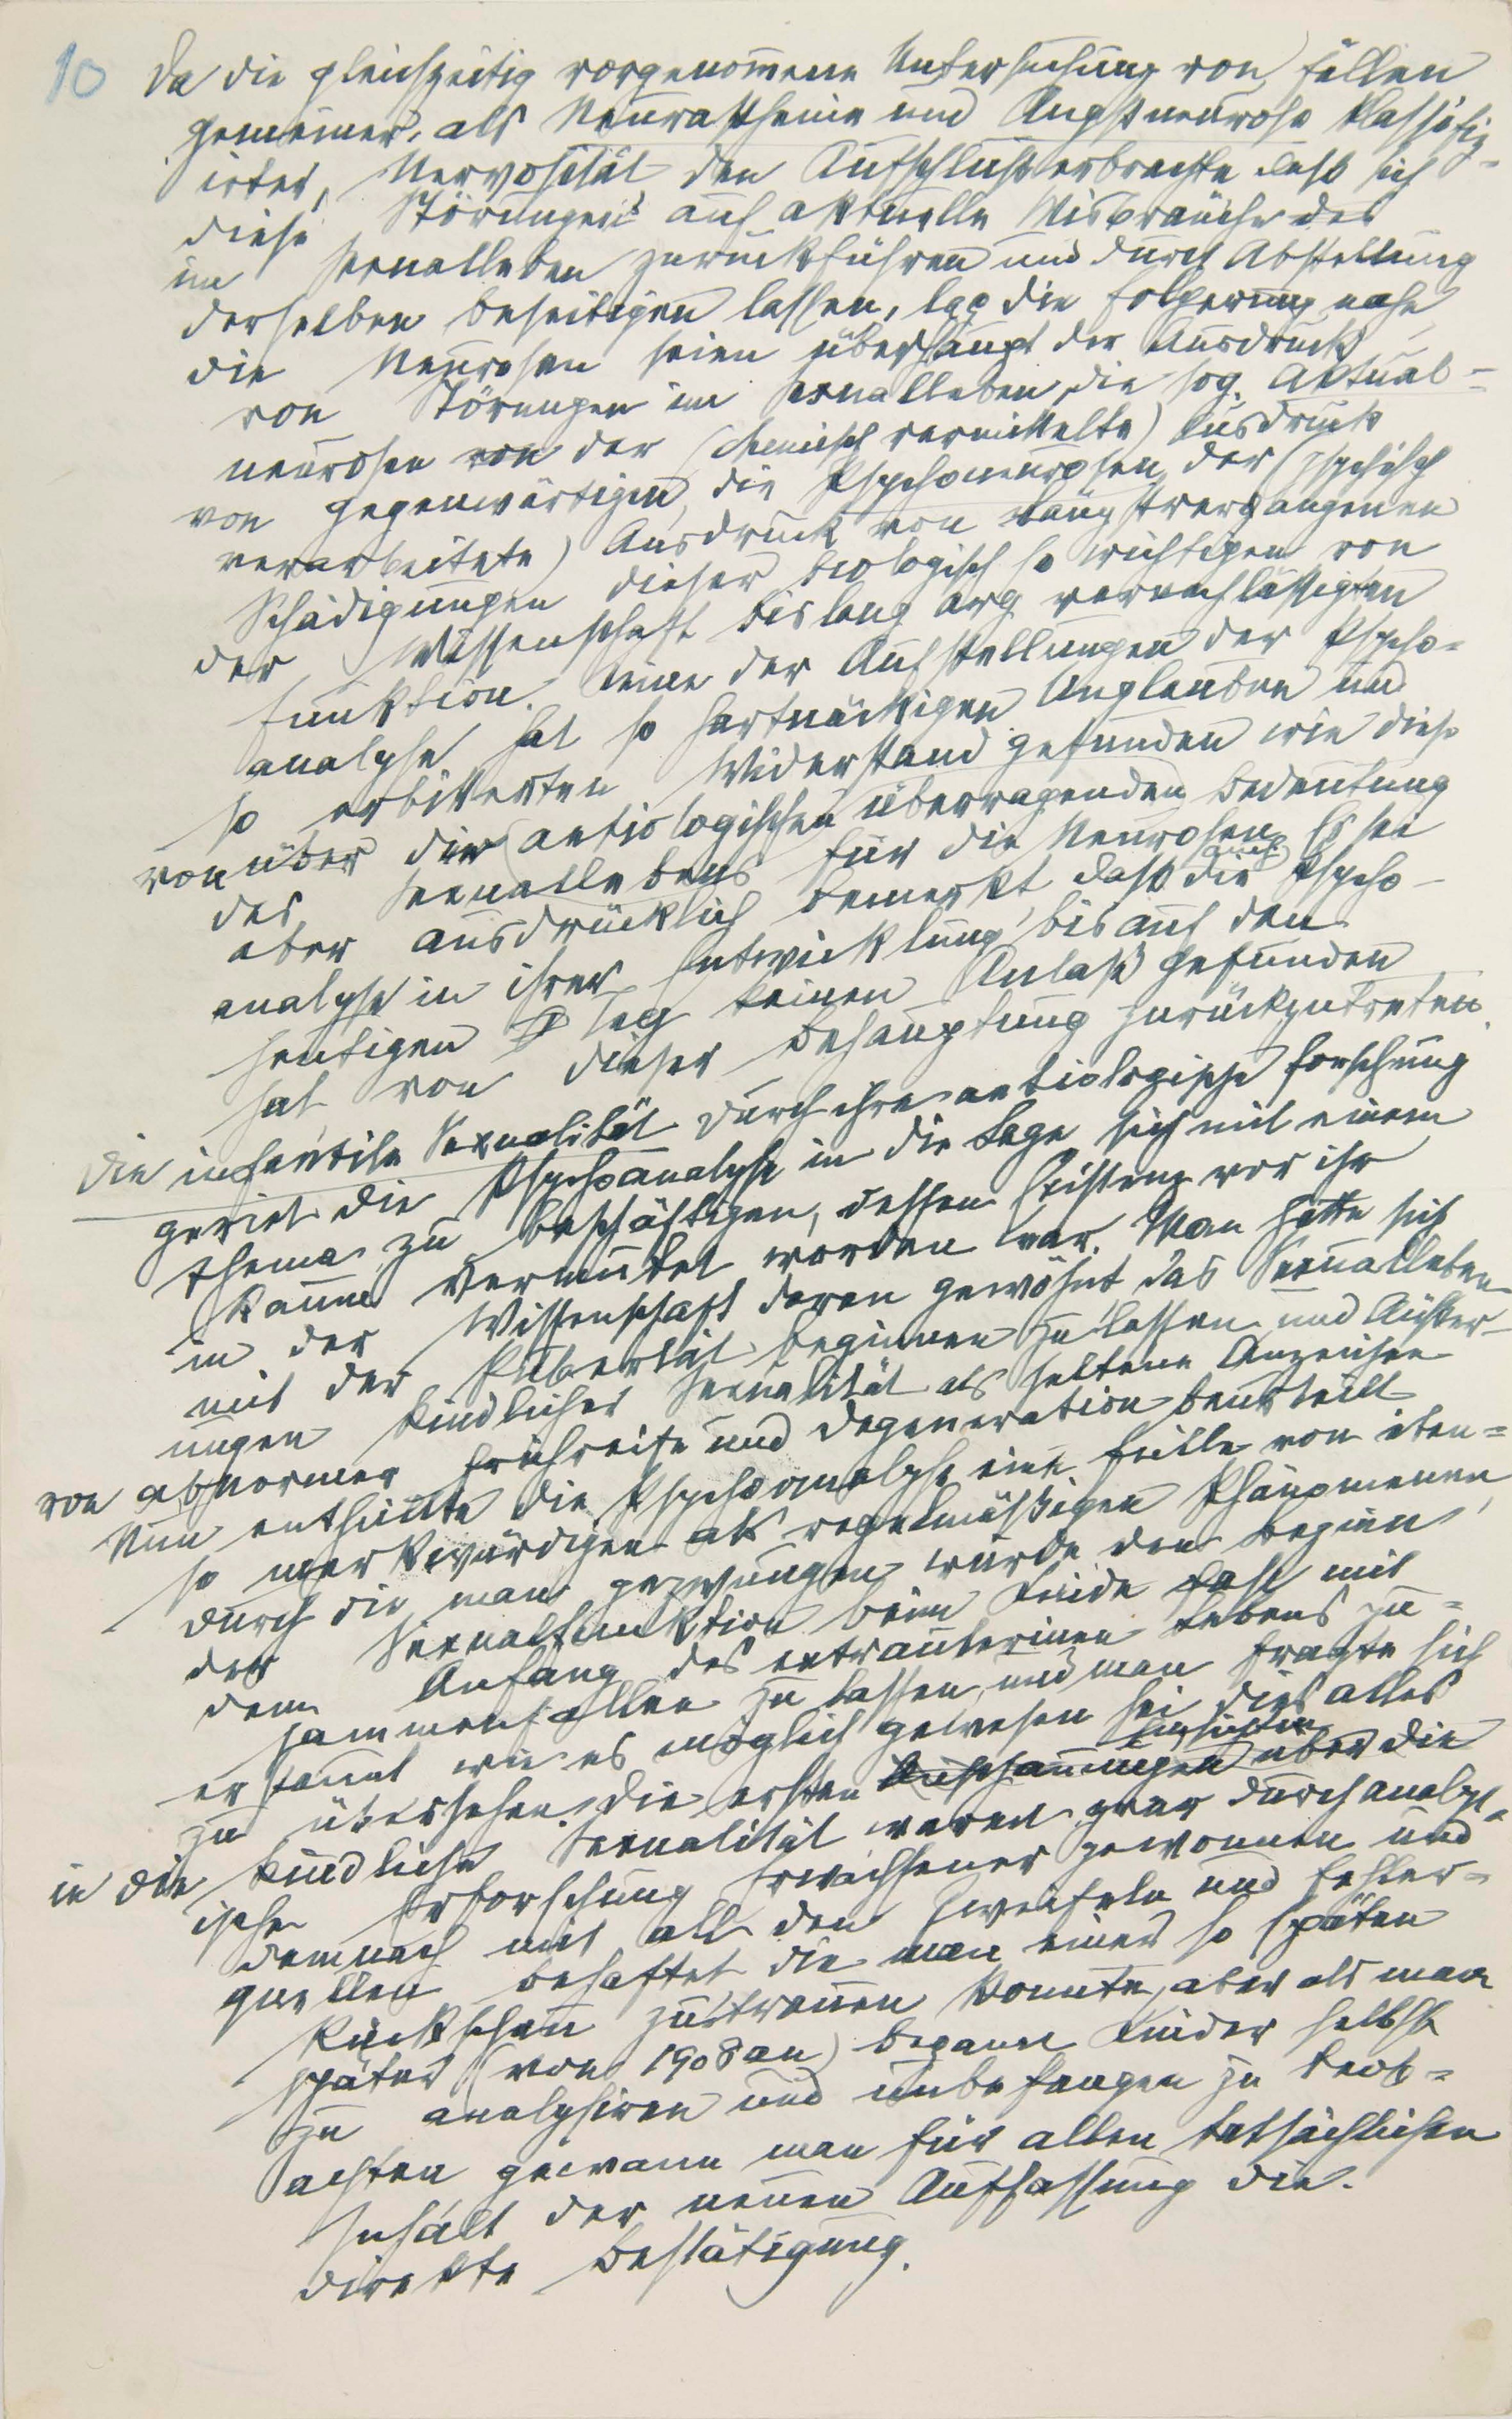 10 Da die gleichzeitig vorgenom̄ene Untersuchung von Fällen
gemeiner, als Neurasthenie und Angstneurose klassifiz-
irter, Nervosität den Aufschluß erbrachte daß sich
diese Störungen auf aktuelle Misbräuche
im Sexualleben zurückführen und durch Abstellung
derselben beseitigen lassen, lag die Folgerung nahe
die Neurosen seien überhaupt der Ausdruck
von Störungen im Sexualleben, die sog. Aktual-
neurosen der (chemisch vermittelte) Ausdruck
von gegenwärtigen, die Psychoneurosen der (psychisch
verarbeitete) Ausdruck von längstvergangenen
Schädigungen dieser biologisch so wichtigen von
der Wissenschaft bislang arg vernachläßigten
Funktion. Keine der Aufstellungen der Psycho-
analyse hat so hartnäckigen Unglauben und
so erbitterten Widerstand gefunden wie diese
von der aetiologischen überragenden Bedeutung
des Sexuallebens für die Neurosen. Es sei
aber ausdrücklich bemerkt, daß auch die Psycho-
analyse in ihrer Entwicklung bis auf den
heutigen Tag keinen Anlaß gefunden
hat von dieser Behauptung zurückzutreten.
Die infantile Sexualität Durch ihre aetiologische Forschung
geriet die Psychoanalyse in die Lage sich mit einem
Thema zu beschäftigen, dessen Existenz vor ihr
kaum vermutet worden war. Man hatte sich
in der Wissenschaft daran gewöhnt das Sexualleben
mit der Pubertät beginnen zu lassen und Äußer-
ungen kindlicher Sexualität als seltene Anzeichen
von abnormer Frühreife und Degeneration beurteilt.
Nun enthüllte die Psychoanalyse eine Fülle von eben-
so merkwürdigen als regelmäßigen Phänomenen,
durch die man gezwungen wurde den Beginn
der Sexualfunktion beim Kinde fast mit
dem Anfang des extrauterinen Lebens zu-
sammenfallen zu lassen, und man fragte sich
erstaunt wie es möglich gewesen sei dies alles
zu übersehen. Die ersten Anschauungen Einsichten über die
in die kindliche Sexualität waren zwar durch analyt-
ische Erforschung Erwachsener gewonnen und
demnach mit all den Zweifeln und Fehler-
quellen behaftet die man einer so späten
Rückschau zutrauen konnte, aber als man
später (von 1908 an) begann Kinder selbst
zu analysiren und unbefangen zu beob-
achten gewann man für allen tatsächlichen
Inhalt der neuen Auffassung die
direkte Bestätigung.